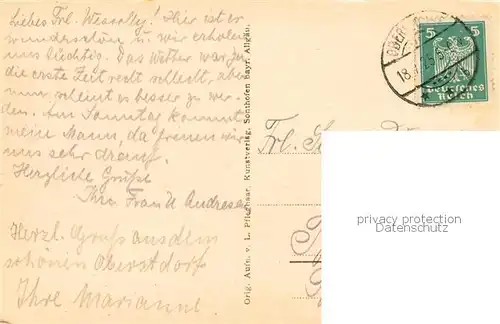 Liebes Frl. Wesselky! Hier ist es
wunderschön u. wir erholen
uns tüchtig. Das Wetter war
die erste Zeit recht schlecht, aber
nun scheint es besser zu wer-
den. Am Sonntag kommt
mein Mann, da freuen wir
uns sehr drauf.
Herzliche Grüße
Ihre Frau Andresen
Herzl. Gruß aus dem
schönen Oberstdorf
Ihre Marianne.
Orig. Aufn. v. L. Pflegbaar, Kunstverlag, Sonthofen Bayr. Allgäu.
18
5 5
Deutsches
Reich
Frl.
privacy protection
Datenschutz